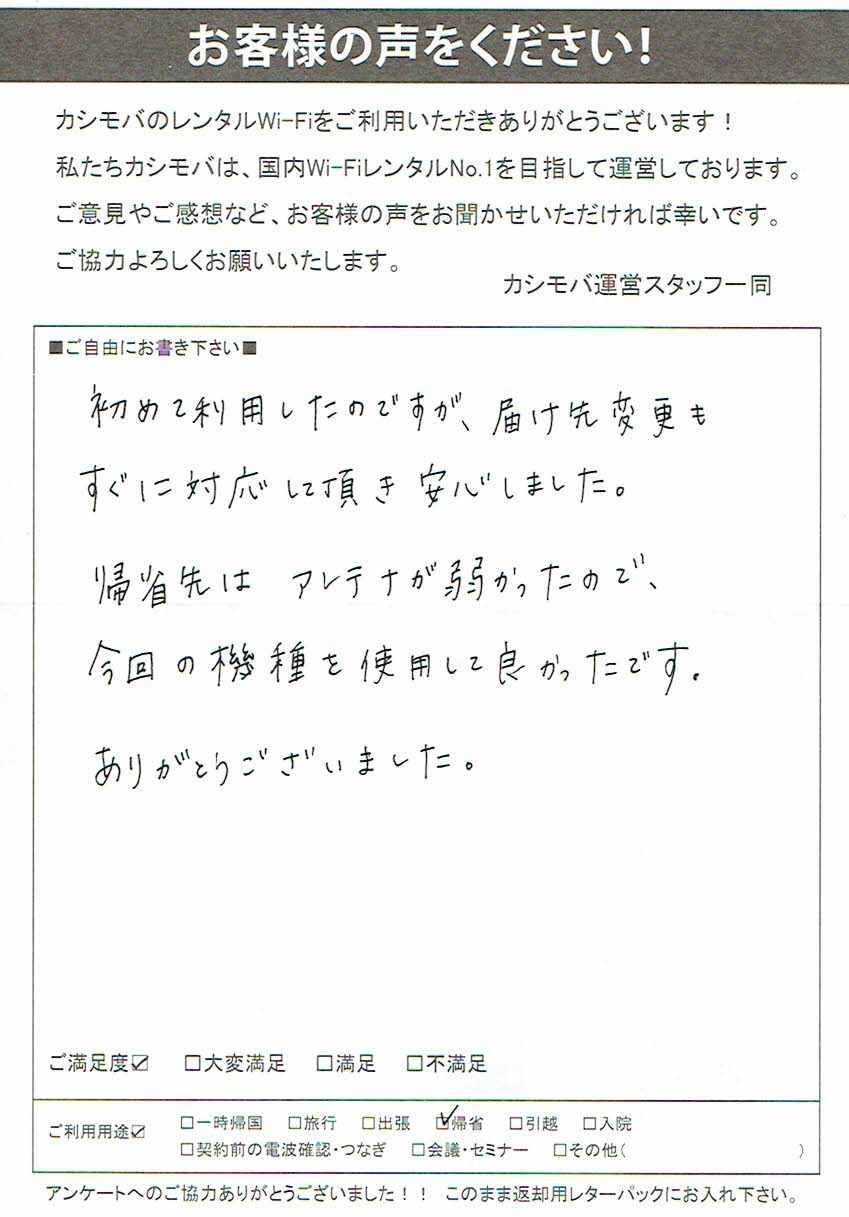 お客様の声をください!
カシモバのレンタルWi-Fiをご利用いただきありがとうございます！
私たちカシモバは、国内Wi-FiレンタルNo.1を目指して運営しております。
ご意見やご感想など、お客様の声をお聞かせいただければ幸いです。
ご協力よろしくお願いいたします。
カシモバ運営スタッフ一同
■ご自由にお書き下さい■
初めて利用したのですが、届け先変更も
すぐに対応して頂き安心しました。
帰省先は アンテナが弱かったので、
今回の機種を使用して良かったです.
ありがとうございました。
ご満足度☑ □大変満足 □満足 □不満足
ご利用用途☑ □一時帰国 □旅行 □出張 ☑帰省 □引越 □入院
□契約前の電波確認・つなぎ □会議・セミナー □その他( )
アンケートへのご協力ありがとうございました！！ このまま返却用レターパックにお入れ下さい。